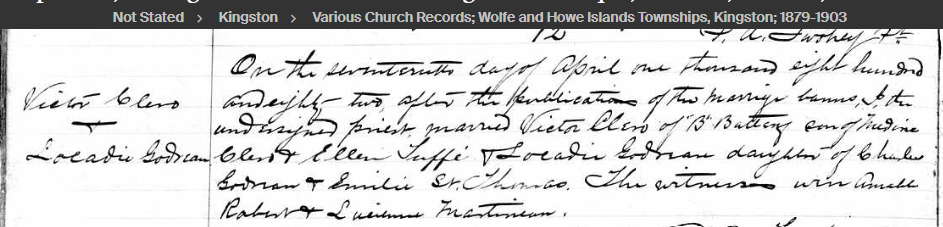 Not Stated > Kingston > Various Church Records; Wolfe and Howe Islands Townships, Kingston; 1879-1903
12 T. A. Twohey Pt.
On the seventeenth day of April one thousand eight hundred
Victor Clero and eighty-two, after the publication of the marriage banns, I, the
undersigned priest, married Victor Clero of "B" Battery son of
Locadie Godreau Clero & Ellen & Locadie Godreau daughter of Charles
Godreau & Emilie St. Thomas. The witnesses were
Robert & Lucienne Martineau.